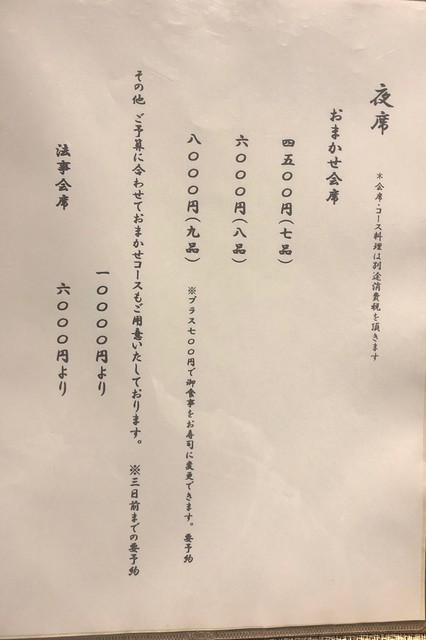 夜席
＊会席・コース料理は別途消費税を頂きます
おまかせ会席
四五〇〇円（七品）
六〇〇〇円（八品）
八〇〇〇円（九品）
※プラス七〇〇円で御食事をお寿司に変更できます。要予約
その他 ご予算に合わせておまかせコースもご用意いたしております。 ※三日前までの要予約
一〇〇〇〇円より
法事会席 六〇〇〇円より